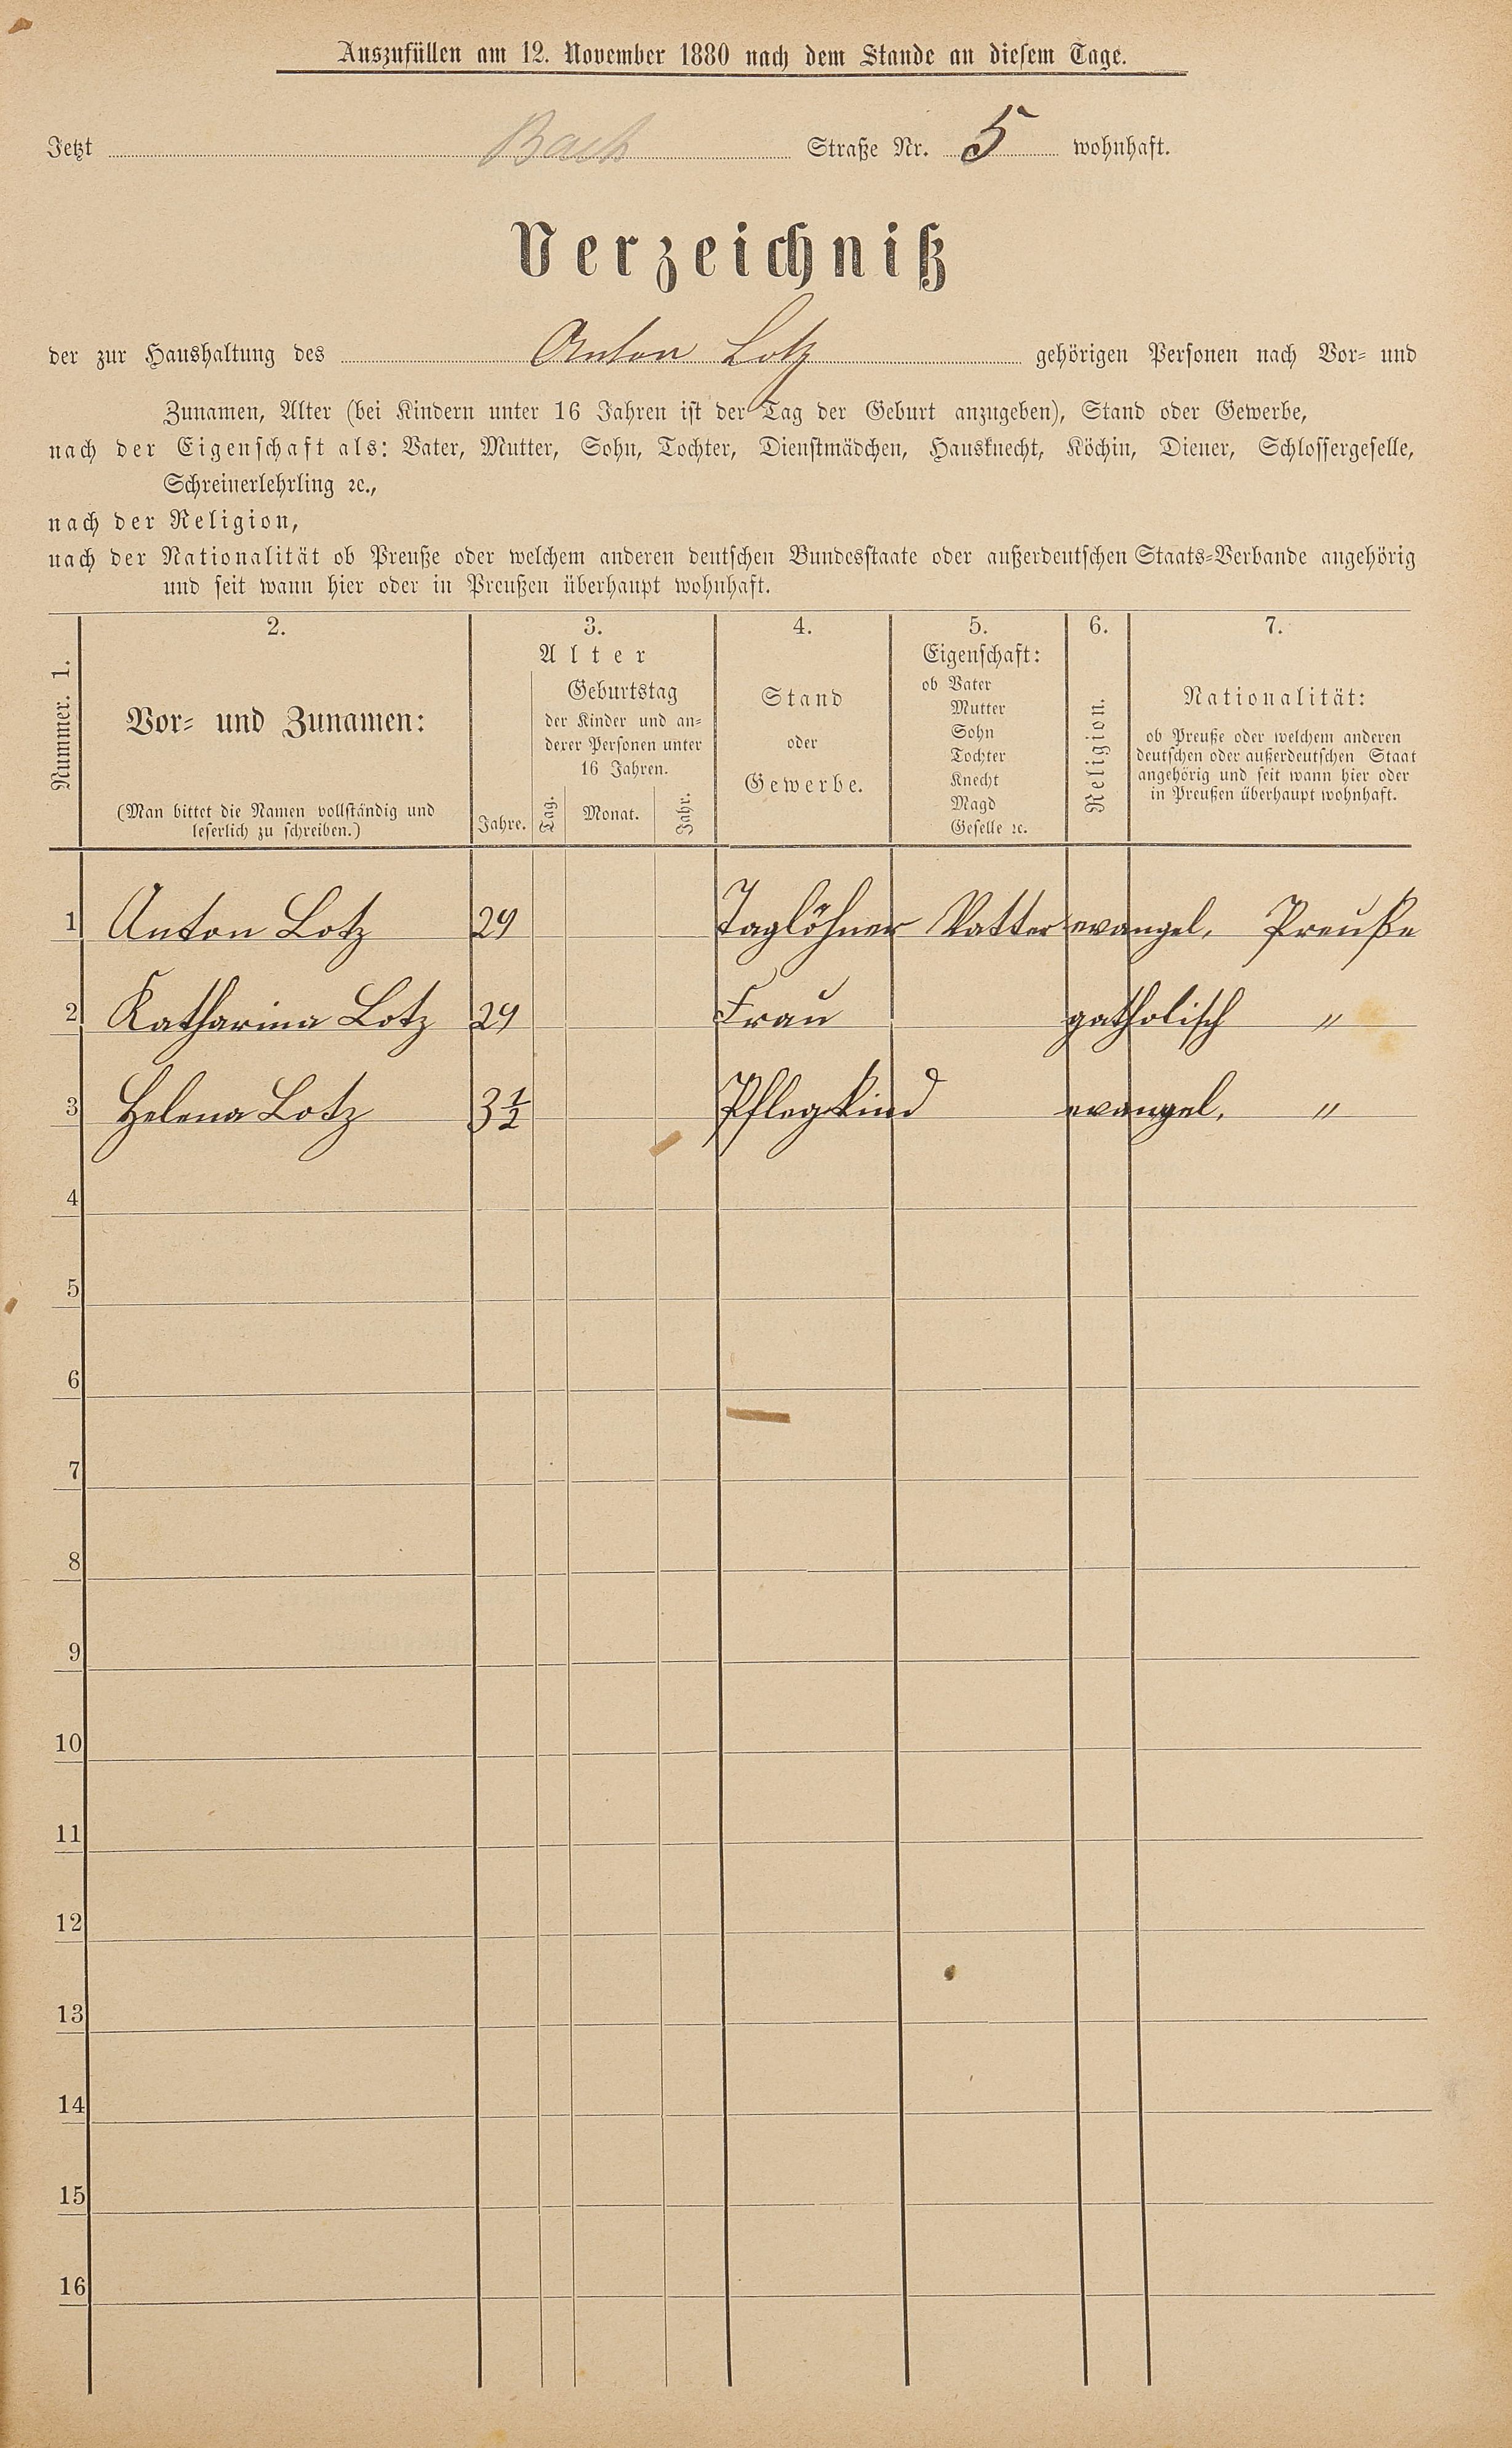 Auszufüllen am 12. November 1880 nach dem Stande an diesem Tage.
Jetzt Bach Straße Nr. 5 wohnhaft.
Verzeichniß
der zur Haushaltung des Anton Lotz gehörigen Personen nach Vor- und
Zunamen, Alter (bei Kindern unter 16 Jahren ist der Tag der Geburt anzugeben), Stand oder Gewerbe,
nach der Eigenschaft als: Vater, Mutter, Sohn, Tochter, Dienstmädchen, Hausknecht, Köchin, Diener, Schlossergeselle,
Schreinerlehrling ꝛc.,
nach der Religion,
nach der Nationalität ob Preuße oder welchem anderen deutschen Bundesstaate oder außerdeutschen Staats-Verbande angehörig
und seit wann hier oder in Preußen überhaupt wohnhaft.
Nummer. 1.
2.
Vor- und Zunamen:
(Man bittet die Namen vollständig und
leserlich zu schreiben.)
3.
Alter
Jahre.
Geburtstag
der Kinder und an-
derer Personen unter
16 Jahren.
Tag. Monat. Jahr.
4.
Stand
oder
Gewerbe.
5.
Eigenschaft:
ob Vater
Mutter
Sohn
Tochter
Knecht
Magd
Geselle ꝛc.
6.
Religion.
7.
Nationalität:
ob Preuße oder welchem anderen
deutschen oder außerdeutschen Staat
angehörig und seit wann hier oder
in Preußen überhaupt wohnhaft.
1 Anton Lotz 29 Taglöhner Vatter evangel. Preuße
2 Katharina Lotz 29 Frau gatholisch "
3 Helena Lotz 3 1/2 Pflegkind evangel. "
4
5
6
7
8
9
10
11
12
13
14
15
16